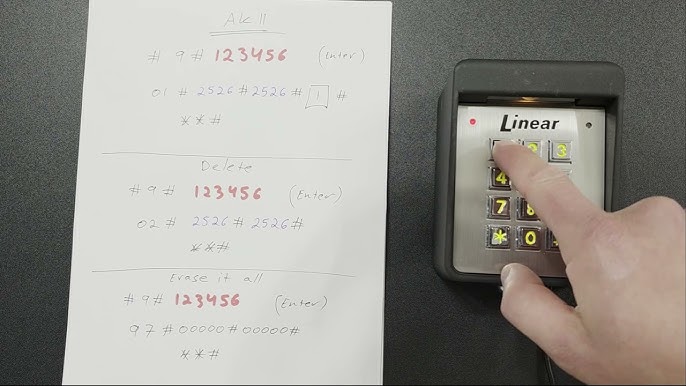 AK 11
# 9 # 123456 (Enter)
01 # 2526 # 2526 # 1 #
* * #
Delete
# 9 # 123456 (Enter)
02 # 2526 # 2526 #
* * #
Erase it all
# 9 # 123456 (Enter)
97 # 00000 # 00000 #
* * #
Linear
2 3
4
7 8
* 0